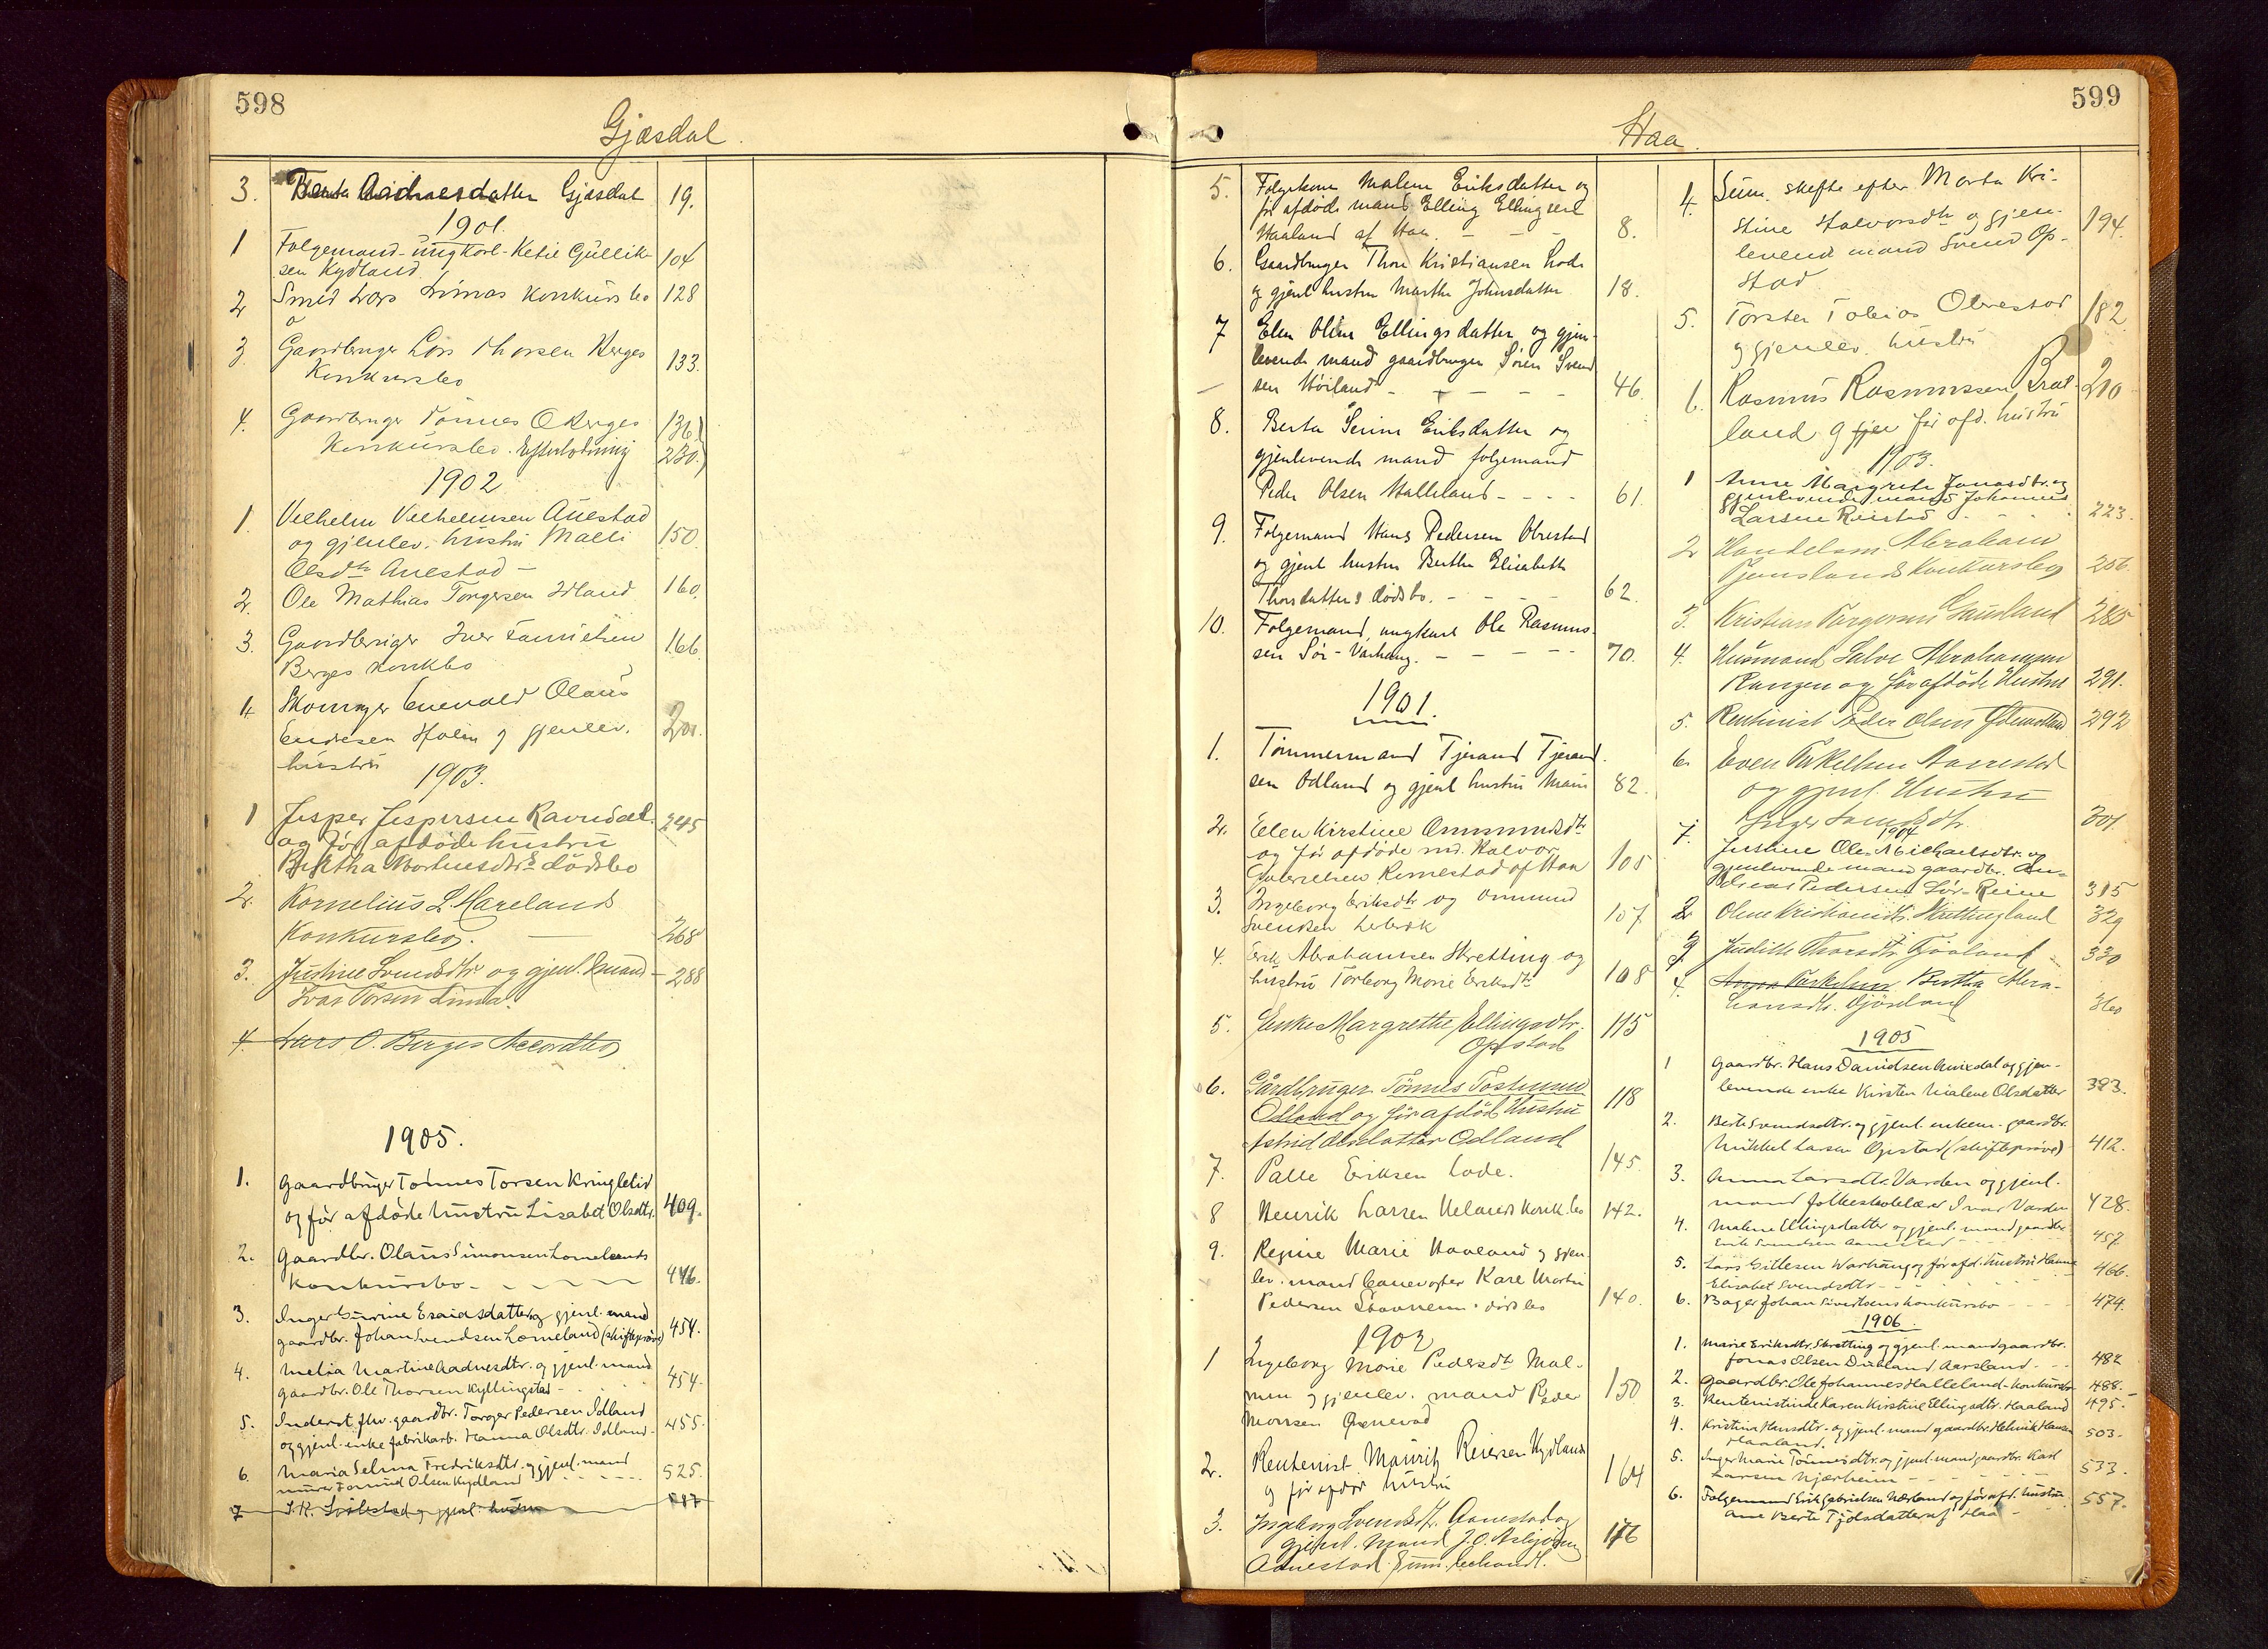 598
Gjæsdal.
3. Berta Gjæsdal 19.
1901.
1 Folgemand ungkarl Ketil Gullik-
sen Kydland 104
2 Smed Lars Limas Konkursbo 128
3 Gaardbruger Lars Thorsen Berges
Konkursbo 133.
4. Gaardbruger Tønnes O Berges 136)
Konkursbo. Efterlodning 230)
1902
1. Vilhelm Vilhelmsen Auestad
og gjenlev. hustru Malli 150.
Olsdtr Auestad –
2. Ole Mathias Torgersen Idland 160.
3. Gaardbruger Iver Tønnesen 166.
Berges konkbo
4 Skomager Enevald Olaus
Endresen Holm og gjenlev. 201.
hustru
1903.
1 Jesper Jespersen Ravndal 245
og før afdøde hustru
Bertha Bortnesdtrs dødsbo
2. Kornelius L. Mareland
Konkursbo. 268
3. Justine Svendsdtr og gjenl. mand – 288
Ivar Torsen Lima.
4. Lars O. Berges Accordbo
1905.
1. Gaardbruger Tønnes Torsen Kringlelid
og før afdøde hustru Lisabet Olsdtr. 409.
2. Gaardbr. Olaus Simonsen Lomelands
Konkursbo 446.
3. Inger Gurine Esaiasdatter og gjenl. mand
gaardbr. Johan Svendsen Lomeland (skifteprøve) 454.
4. Melia Martine Aadnesdtr. og gjenl. mand
gaardbr. Ole Thorsen Kyllingstad 454.
5. Inderst fhv. gaardbr. Torger Pedersen Idland
og gjenl. enke fabrikarb. Hanna Olsdtr. Idland 455.
6. Maria Selma Fredriksdtr. og gjenl. mand
murer Tormod Olsen Kydland 525.
7 og gjenl. hustru
599
Haa.
5. Folgekone Malene Eriksdatter og
før afdøde mand Elling Ellingsen
Haaland af Haa 8.
6. Gaardbruger Thore Kristiansen Lode
og gjenl hustru Marthe Johnsdatter 18.
7 Elen Oline Ellingsdatter og gjen-
levende mand gaardbruger Søren Svend
sen Høiland 46.
8. Berta Serine Eriksdatter og
gjenlevende mand folgemand
Peder Olsen Halleland 61.
9. Folgemand Hans Pedersen Obrestad
og gjenl hustru Berthe Elisabeth
Thorsdatters dødsbo. 62.
10. Folgemand, ungkarl Ole Rasmus-
sen Sør-Varhaug. 70.
1901.
1. Tømmermand Tjerand Tjerand-
sen Odland og gjenl hustru Mari 82.
2. Elen Kirstine Ommundsdtr
og før afdøde md. Halvor
Gabrielsen Rimestad af Haa 105
3. Ingeborg Eriksdtr og Ommund 107.
Svendsen
4. Erik Abrahamsen Skretting og 108
hustru Torborg Marie Eriksdtr
5. Enke Margrethe Ellingsdtr. 115
Opstad
6. Gårdbruger Tønnes Tostensen
Odland og før afdød hustru 118
Astrid Odland
7. Palle Eriksen Lode. 145.
8 Henrik Larsen Uelands konk.bo 142.
9. Regine Marie Haaland og gjen
lev. mand Kare Martin
Pedersen dødsbo 140.
1902
1 Ingeborg Marie Pedersdtr Mal-
min og gjenlev. mand Peder 150
Monsen
2. Rentenist Mauritz Reiersen Kydland 164
og før afdød hustru
3. Ingeborg Svendsdtr. Aanestad og
gjenl. Mand J.O. Asbjørn 176
Aanestad. Sum. behandl.
4. Sum. skifte efter Marta Kri-
stine Halvorsdtr og gjen- 194.
levende mand Svend Op-
stad
5. Torsten Tobias Obrestad 182
og gjenlev. hustru
6. Rasmus Rasmussen Braut- 210
land og før afd. hustru
1903.
1 Anne Margrete Jonasdtr. og
gjenlevende mand Johannes
Larsen Reistad 223.
2 Handelsm. Abraham
Tjemslands Konkursbo 256
3. Kristian Torgersen Gausland 285
4. Husmand Salve Abrahamsen
og før afdøde Hustru 291.
5. Rentenist Peder Olsen Ødemotland 292
6. Even Torkelsen Aanestad
og gjenl. Hustru
Inger 301.
1904
7. Justine Olea Michaelsdtr. og
gjenlevende mand gaardbr. An-
dreas Pedersen Sør-Reime 315
2 Oline Kristiansdtr. Skrettingland 329
3 Judithe Thorsdtr. Tjåland 330
4. Anna Torkelsen Bertha Abra-
hamsdtr. 360
1905
1 Gaardbr. Hans Danielsen Anisdal og gjen-
levende enke Kirsten Malene Olsdatter 393.
2. Berte Svendsdtr. og gjenl. enkem. gaardbr.
Mikkel Larsen Opstad (skifteprøve) 412.
3. Anna Larsdtr. Varden og gjenl.
mand folkeskolelærer Ivar Varden 428.
4. Malene Ellingsdatter og gjenl. mand gaardbr.
Erik Svendsen Aanestad 457
5. Lars Gitlesen Warhaug og før afd. hustru Hanne
Elisabet Svendsdtr. 466.
6. Bager Johan Sivertsens konkursbo 474.
1906.
1. Marie Eriksdtr. Skretting og gjenl. mand gaardbr.
Jonas Olsen Dueland Aarsland 482
2. Gaardbr. Ole Johannes Halleland Konkursbo 488.
3. Rentenistinde Karen Kirstine Ellingsdtr. Haaland 495.
4. Kristina Hansdtr. og gjenl. mand gaardbr. Henrik Hansen
Haaland. 503.
5. Inger Marie Tønnesdtr. og gjenl. mand gaardbr. Karl
Larsen Njærheim 533.
6. Folgemand Erik Gabrielsen Nærland og før afd. hustru
Ane Berte Tjølsdatter af Haa 557.